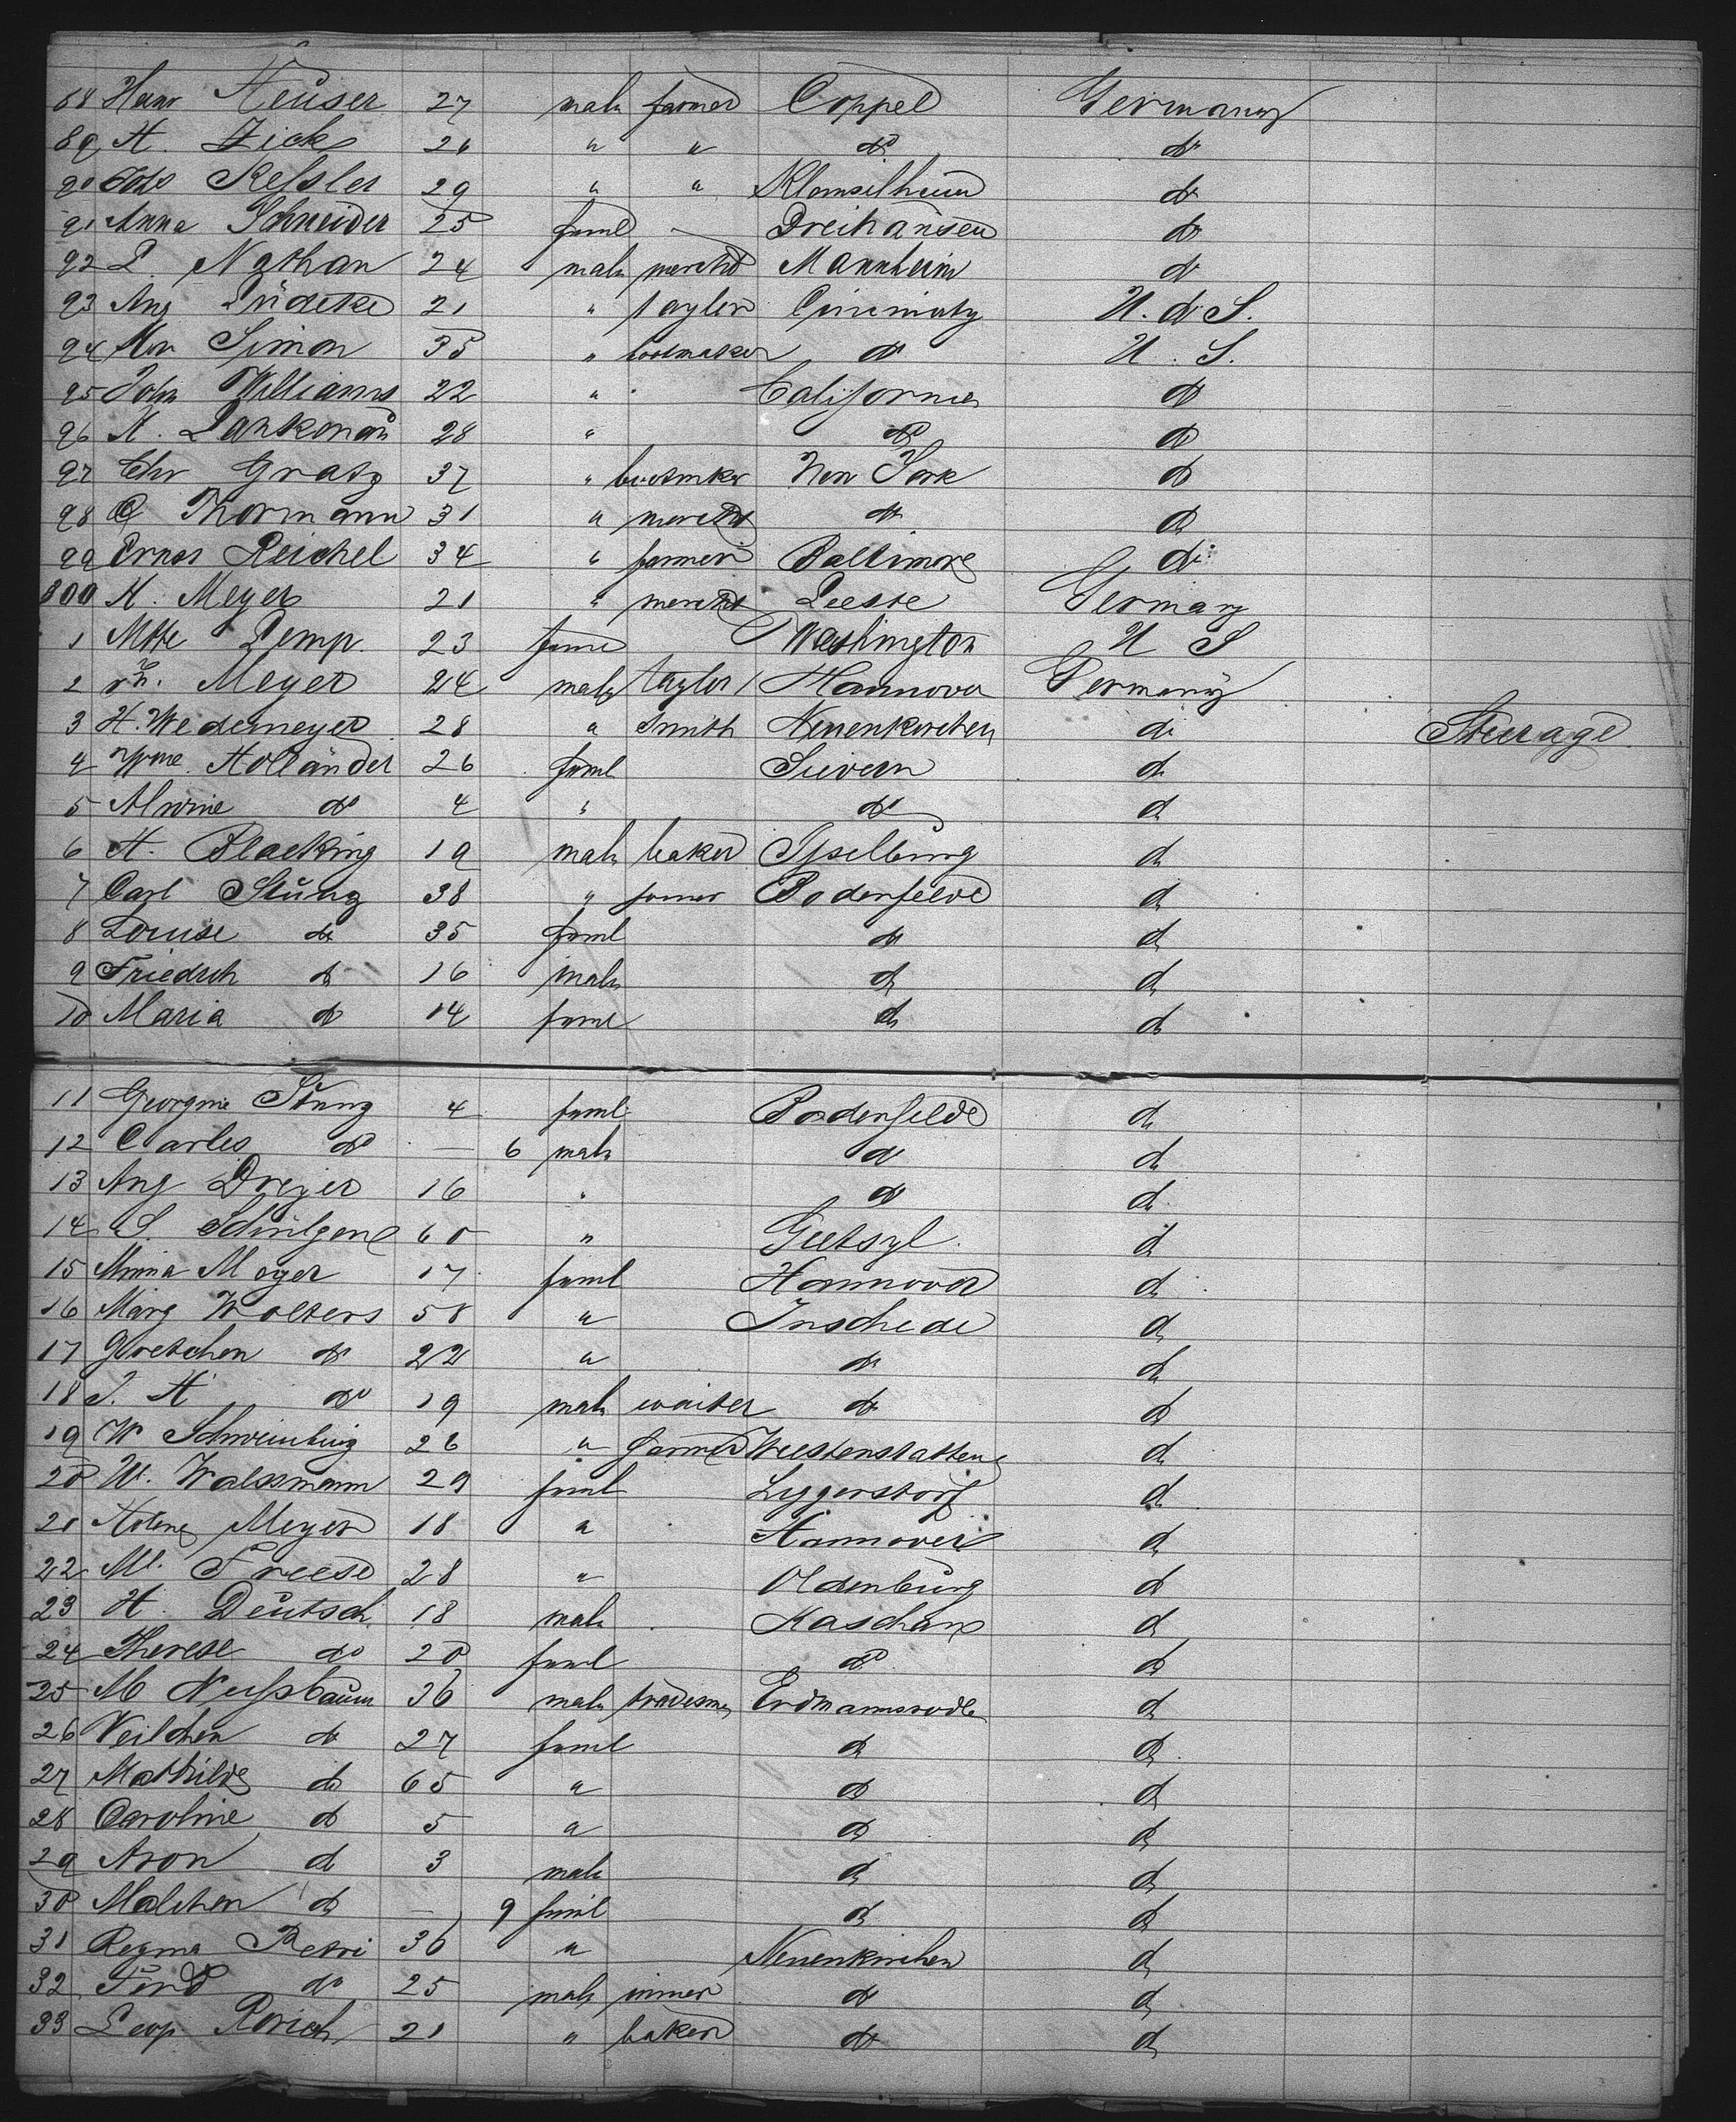 88 Heinr Heuser 27 male farmer Coppel Germany
89 H. Zick 26 " " do do
90 Joh Keßler 29 " " do
91 Anna Schneider 25 feml - Dreihausen do
92 L. Nathan 24 male merchd Mannheim do
93 Aug Lüdeke 21 " taylor Cincinnaty U. d S.
94 Simon 35 " bootmaker do U. S.
95 John Williams 22 " California do
96 H. Lankenau 28 " do do
97 Chr Gratz 37 " bootmker New York do
98 Thormann 31 " merchd do do
99 Ernst Reichel 34 " farmer Baltimore do
300 H. Meyer 21 " merchd Leeste Germany
1 Mtte Lemp. 23 feml Washington U S
2 Meyer 24 male taylor Hannover Germany
3 H. Wedemeyer 28 " Smith Neuenkirchen do Steerage
4 Holländer 26 feml Sievern do
5 Alwine do 4 " do do
6 H. Blacking 19 male baker do
7 Carl Stüng 38 " farmer Bodenfelde do
8 Louise do 35 feml do do
9 Friedrch do 16 male do do
10 Maria do 14 feml do do
11 Georgine Stüng 4 feml Bodenfelde do
12 Carles do — 6 male do do
13 Aug Dreyer 16 " do do
14 S. 60 " do
15 Minna Meyer 17 feml Hannover do
16 Marg Wolters 58 " Inschede do
17 Gretchen do 22 " do do
18 J. H do 19 male waiter do do
19 W 26 " farmer do
20 W. Walssmann 29 feml do
21 Helene Meyer 18 " Hannover do
22 M. Freese 28 " Oldenburg do
23 H. Deutsch 18 male Kaschau do
24 Therese do 20 feml do do
25 M Nußbaum 36 male tradesmn Erdmannsrode do
26 Veilchen do 27 feml do do
27 Mathilde do 65 " do do
28 Caroline do 5 " do do
29 Aron do 3 male do do
30 Malchen do — 9 feml do do
31 Regina Petri 36 " Neuenkirchen do
32 Ferd do 25 male do do
33 Leop Rorich 21 " baker do do